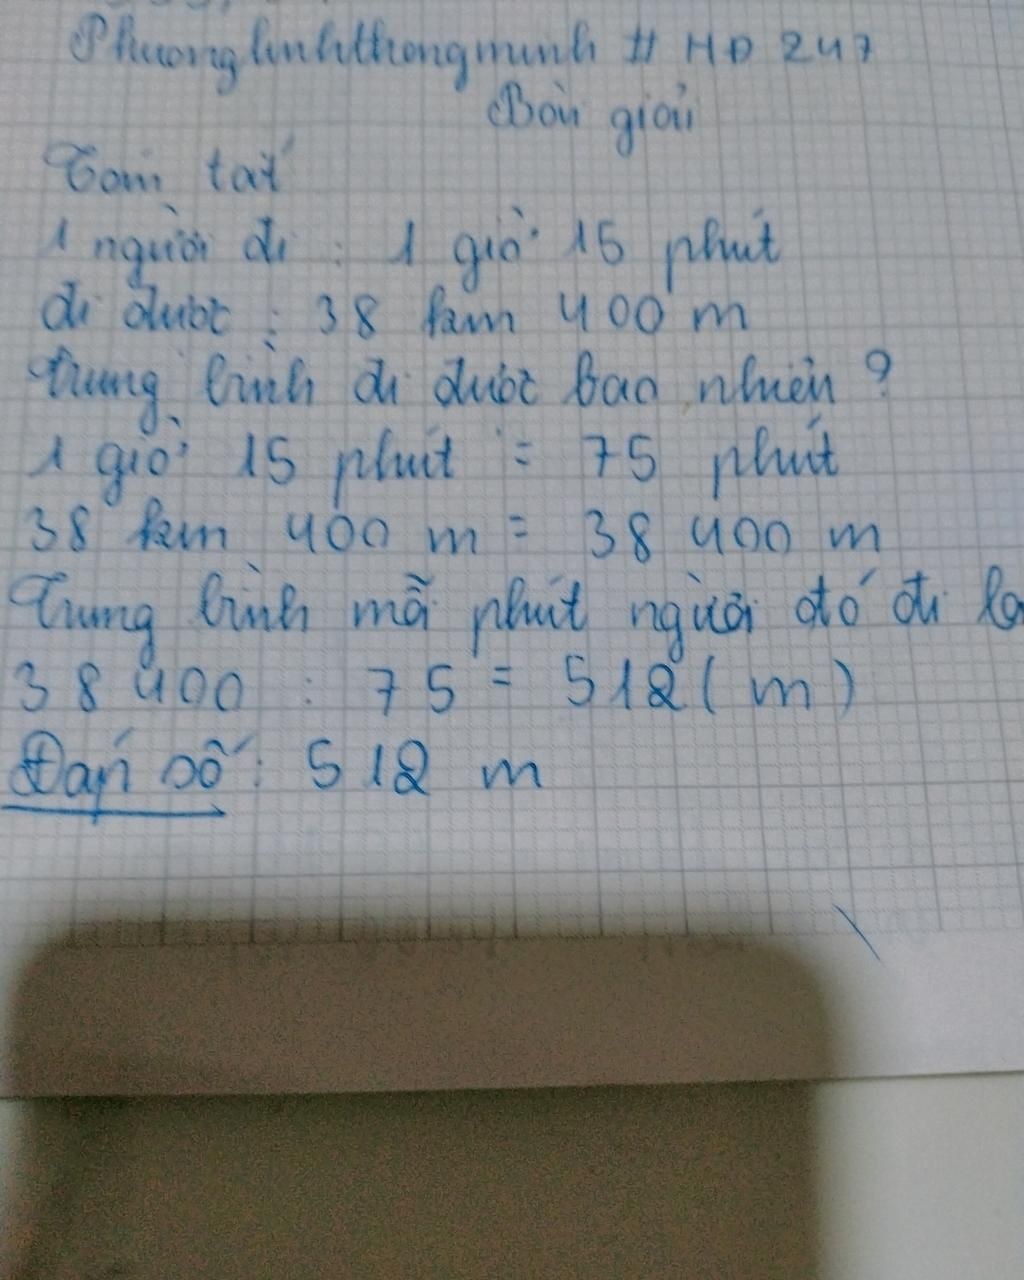 Phuonglinhthongminh # HD 247
Bài giải
Tóm tắt
1 người đi : 1 giờ 15 phút
đi được : 38 km 400 m
Trung bình đi được bao nhiên ?
1 giờ 15 phút = 75 phút
38 km 400 m = 38 400 m
Trung bình mỗi phút người đó đi là
38 400 : 75 = 512 ( m )
Đáp số : 512 m